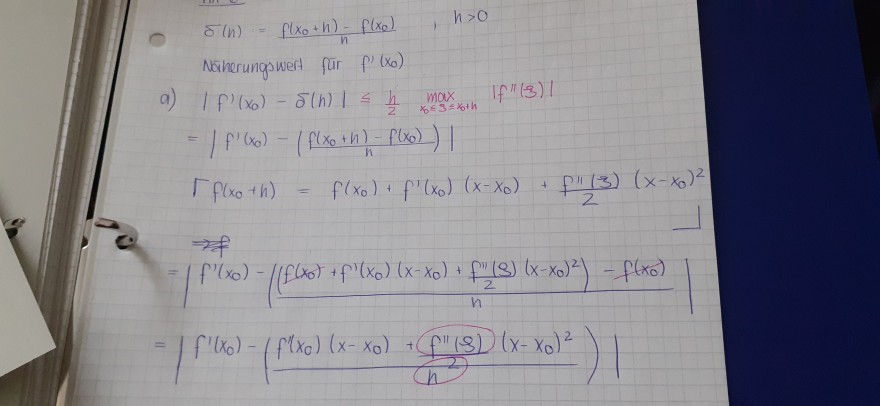 δ(h) = f(x₀+h) - f(x₀) / h , h>0
Näherungswert für f'(x₀)
a) | f'(x₀) - δ(h) | ≤ h/2 max x₀≤ξ≤x₀+h |f''(ξ)|
= | f'(x₀) - ( f(x₀+h) - f(x₀) / h ) |
Γ f(x₀+h) = f(x₀) + f'(x₀) (x-x₀) + f''(ξ)/2 (x-x₀)²
= | f'(x₀) - ((f(x₀) + f'(x₀) (x-x₀) + f''(ξ)/2 (x-x₀)²) - f(x₀) / h |
= | f'(x₀) - ( f'(x₀) (x-x₀) + f''(ξ)/2 (x-x₀)² / h ) |